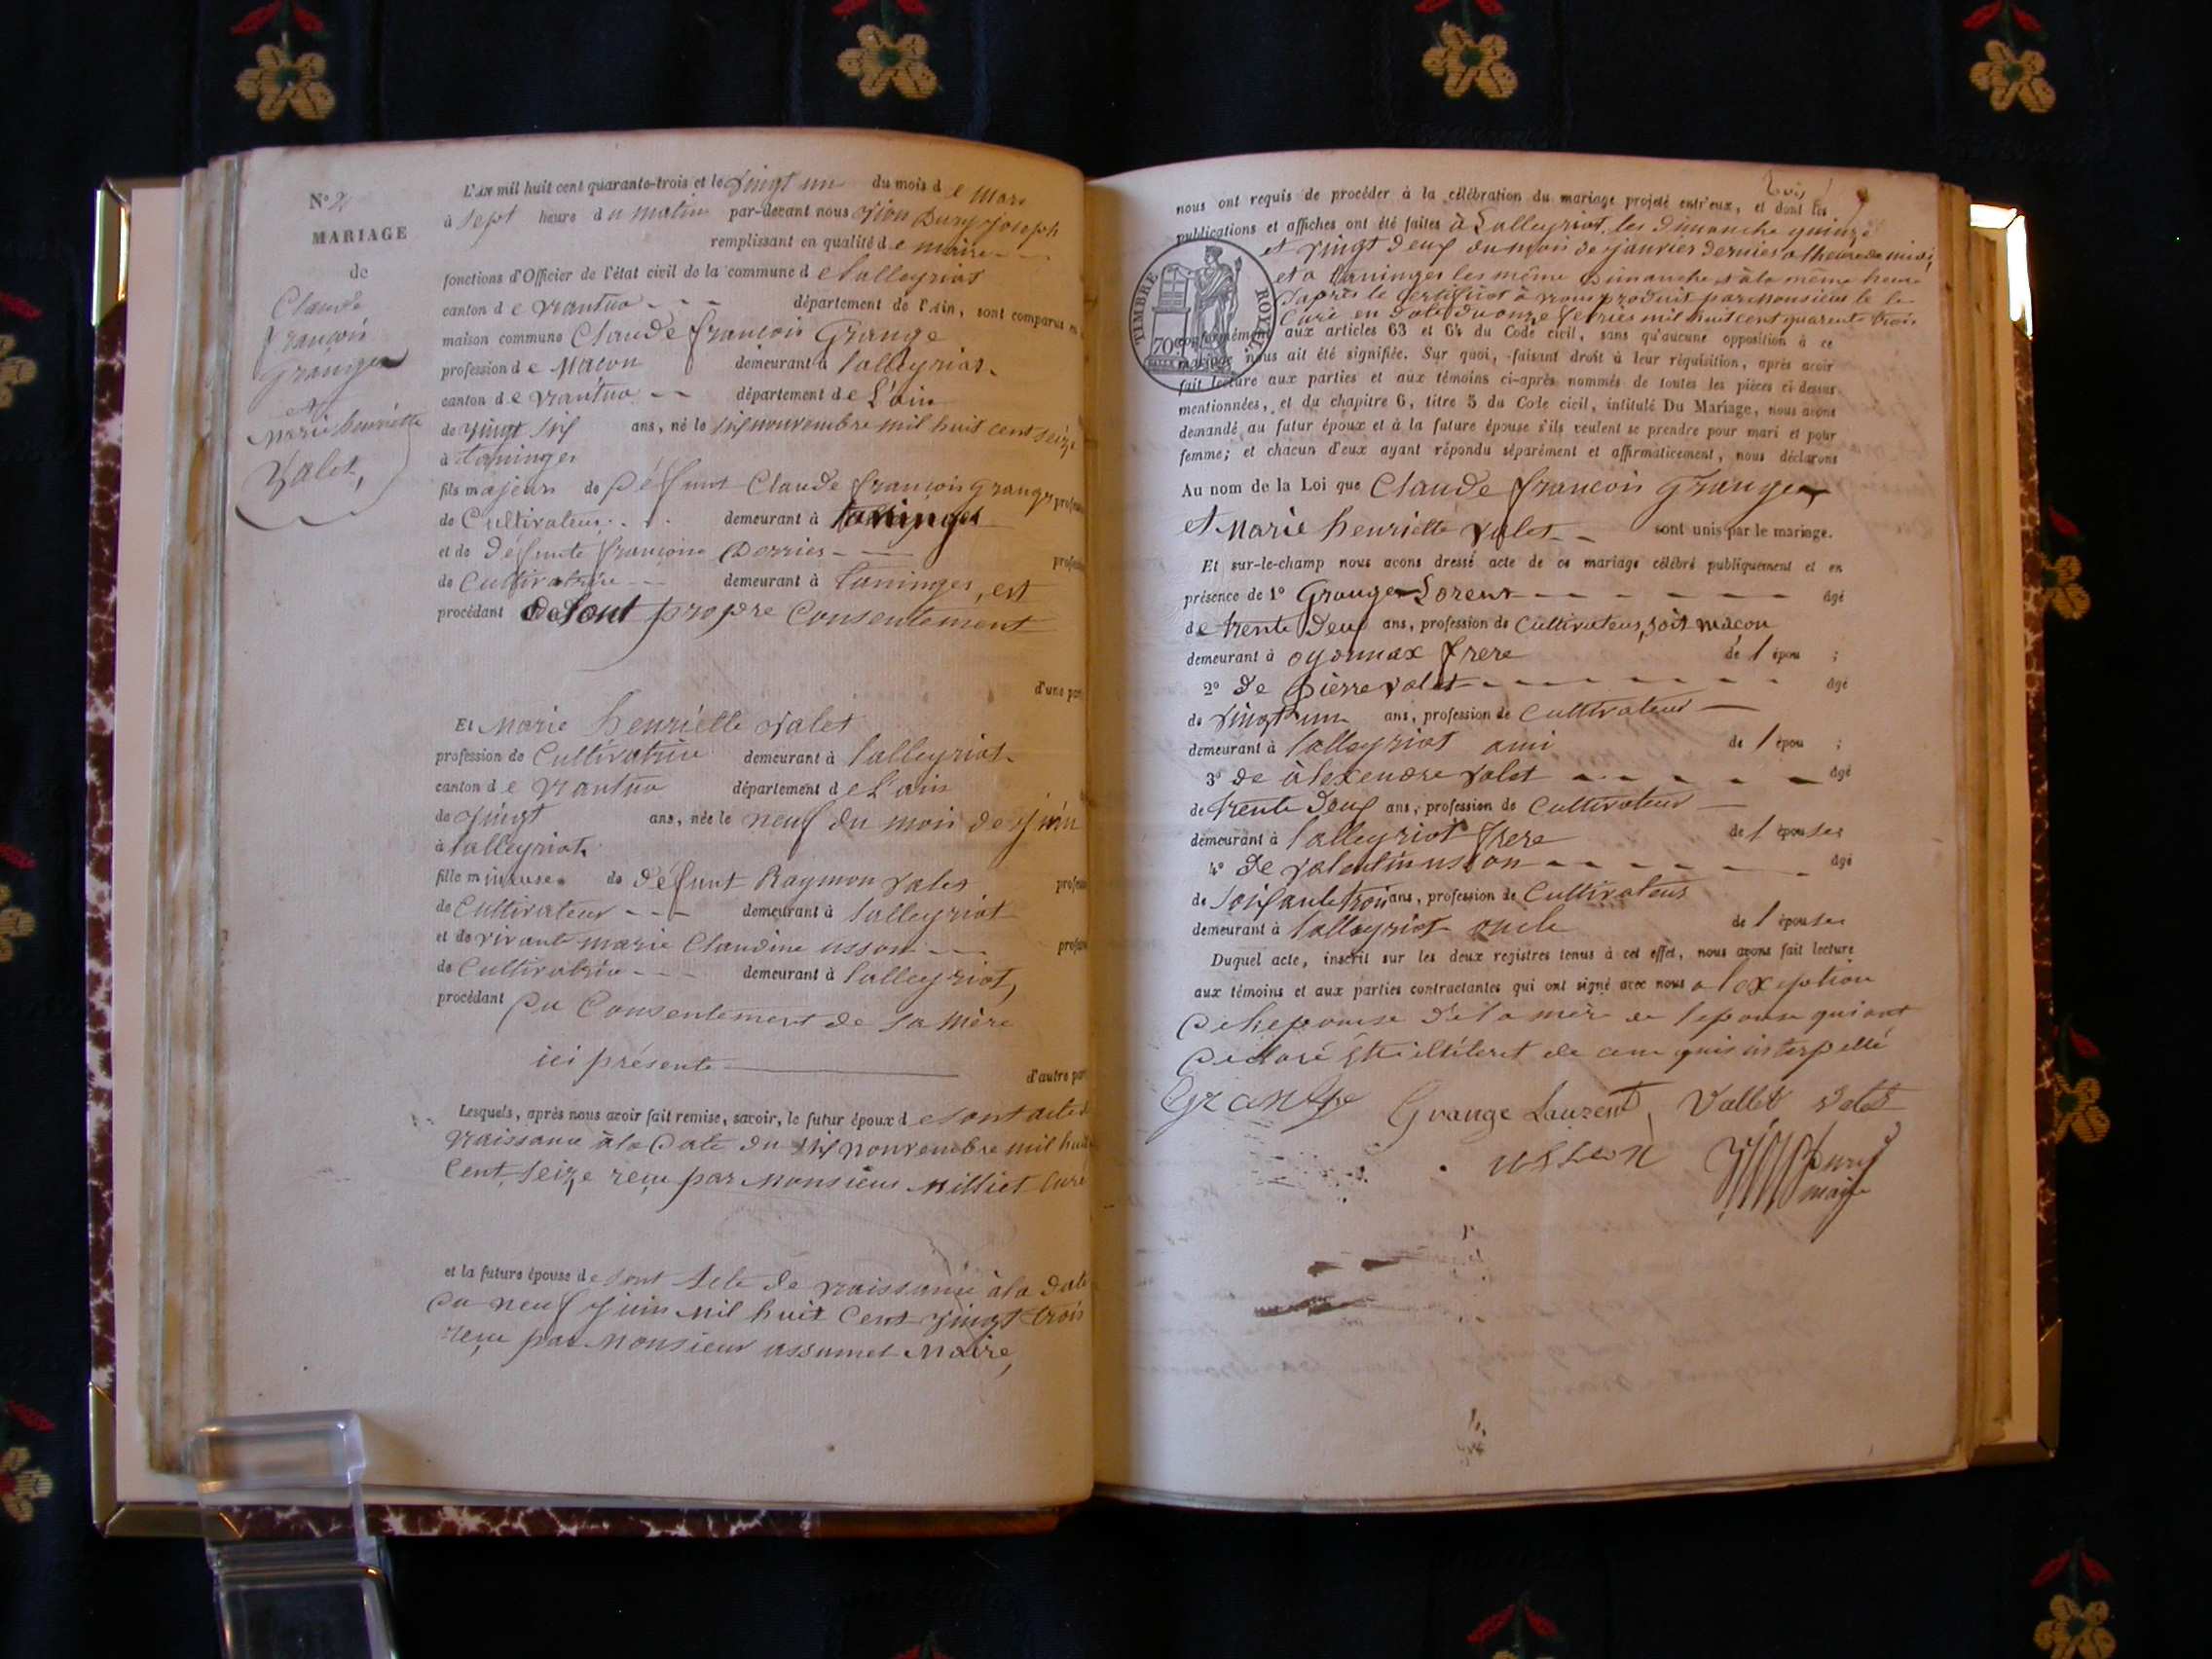 N° 2
MARIAGE
de
Claude
françois
Grange
et
marie henriette
Valet,
L'AN mil huit cent quarante-trois et le vingt un du mois de mars
à sept heure du matin par-devant nous Dury joseph
remplissant en qualité de maire
fonctions d'Officier de l'état civil de la commune de lalleyriat
canton de nantua département de l'Ain, sont comparus en
maison commune Claude françois Grange
profession de Macon demeurant à lalleyriat
canton de nantua département de L'ain
de vingt six ans, né le six nouvembre mil huit cent seize
à taninges
fils majeur de défunt Claude françois Grange profes
de Cultivateur demeurant à taninges
et de défunte françoise profes
de Cultivatrice demeurant à taninges, est
procédant de sont propre Consentement
d'une par
Et Marie henriette valet
profession de Cultivatrice demeurant à lalleyriat
canton de nantua département de L'ain
de vingt ans, née le neuf du mois de juin
à lalleyriat
fille mineuse de défunt Raymon valet profes
de Cultivateur demeurant à lalleyriat
et de vivante marie Claudine usson profes
de Cultivatrice demeurant à lalleyriat,
procédant du Consentement de sa mère
ici présente
d'autre par
Lesquels, après nous avoir fait remise, savoir, le futur époux de sont acte d
naissance à la date du six nouvembre mil huit
Cent seize reçu par Monsieur Milliet Curé
et la future épouse de sont acte de naissance à la date
du neuf juin mil huit Cent vingt trois
reçu par Monsieur assumel Maire,
nous ont requis de procéder à la célébration du mariage projeté entr'eux, et dont les
publications et affiches ont été faites à Lalleyriat les dimanche quinze
et vingt deux du mois de janvier dernier a lheure de midi,
et a taninges les même dimanche à la même heure
d'après le Certificat à nous produit par monsieur le
Curé en date du onze fevrier mil huit cent quarente trois
conformément aux articles 63 et 64 du Code civil, sans qu'aucune opposition à ce
mariage nous ait été signifiée. Sur quoi, faisant droit à leur réquisition, après avoir
fait lecture aux parties et aux témoins ci-après nommés de toutes les pièces ci-dessus
mentionnées, et du chapitre 6, titre 5 du Code civil, intitulé Du Mariage, nous avons
demandé au futur époux et à la future épouse s'ils veulent se prendre pour mari et pour
femme; et chacun d'eux ayant répondu séparément et affirmativement, nous déclarons
TIMBRE ROYAL
70c
Au nom de la Loi que Claude françois Grange
et Marie henriette valet sont unis par le mariage.
Et sur-le-champ nous avons dressé acte de ce mariage célébré publiquement et en
présence de 1° Grange Lorent âgé
de trente deux ans, profession de Cultivateur, soit macon
demeurant à oyonnax frere de l épou ;
2° de pierre valet âgé
de vingt un ans, profession de Cultivateur
demeurant à lalleyriat ami de l épou ;
3° de alexendre valet âgé
de trente deux ans, profession de Cultivateur
demeurant à lalleyriat frere de l épouse
4° de valentin usson âgé
de soixante trois ans, profession de Cultivateur
demeurant à lalleyriat oncle de l épouse
Duquel acte, inscrit sur les deux registres tenus à cet effet, nous avons fait lecture
aux témoins et aux parties contractantes qui ont signé avec nous a l exeption
de lepouse de la mère de lepouse qui ont
declaré
Grange Grange Laurent, Vallet Valet
usson Dury
maire